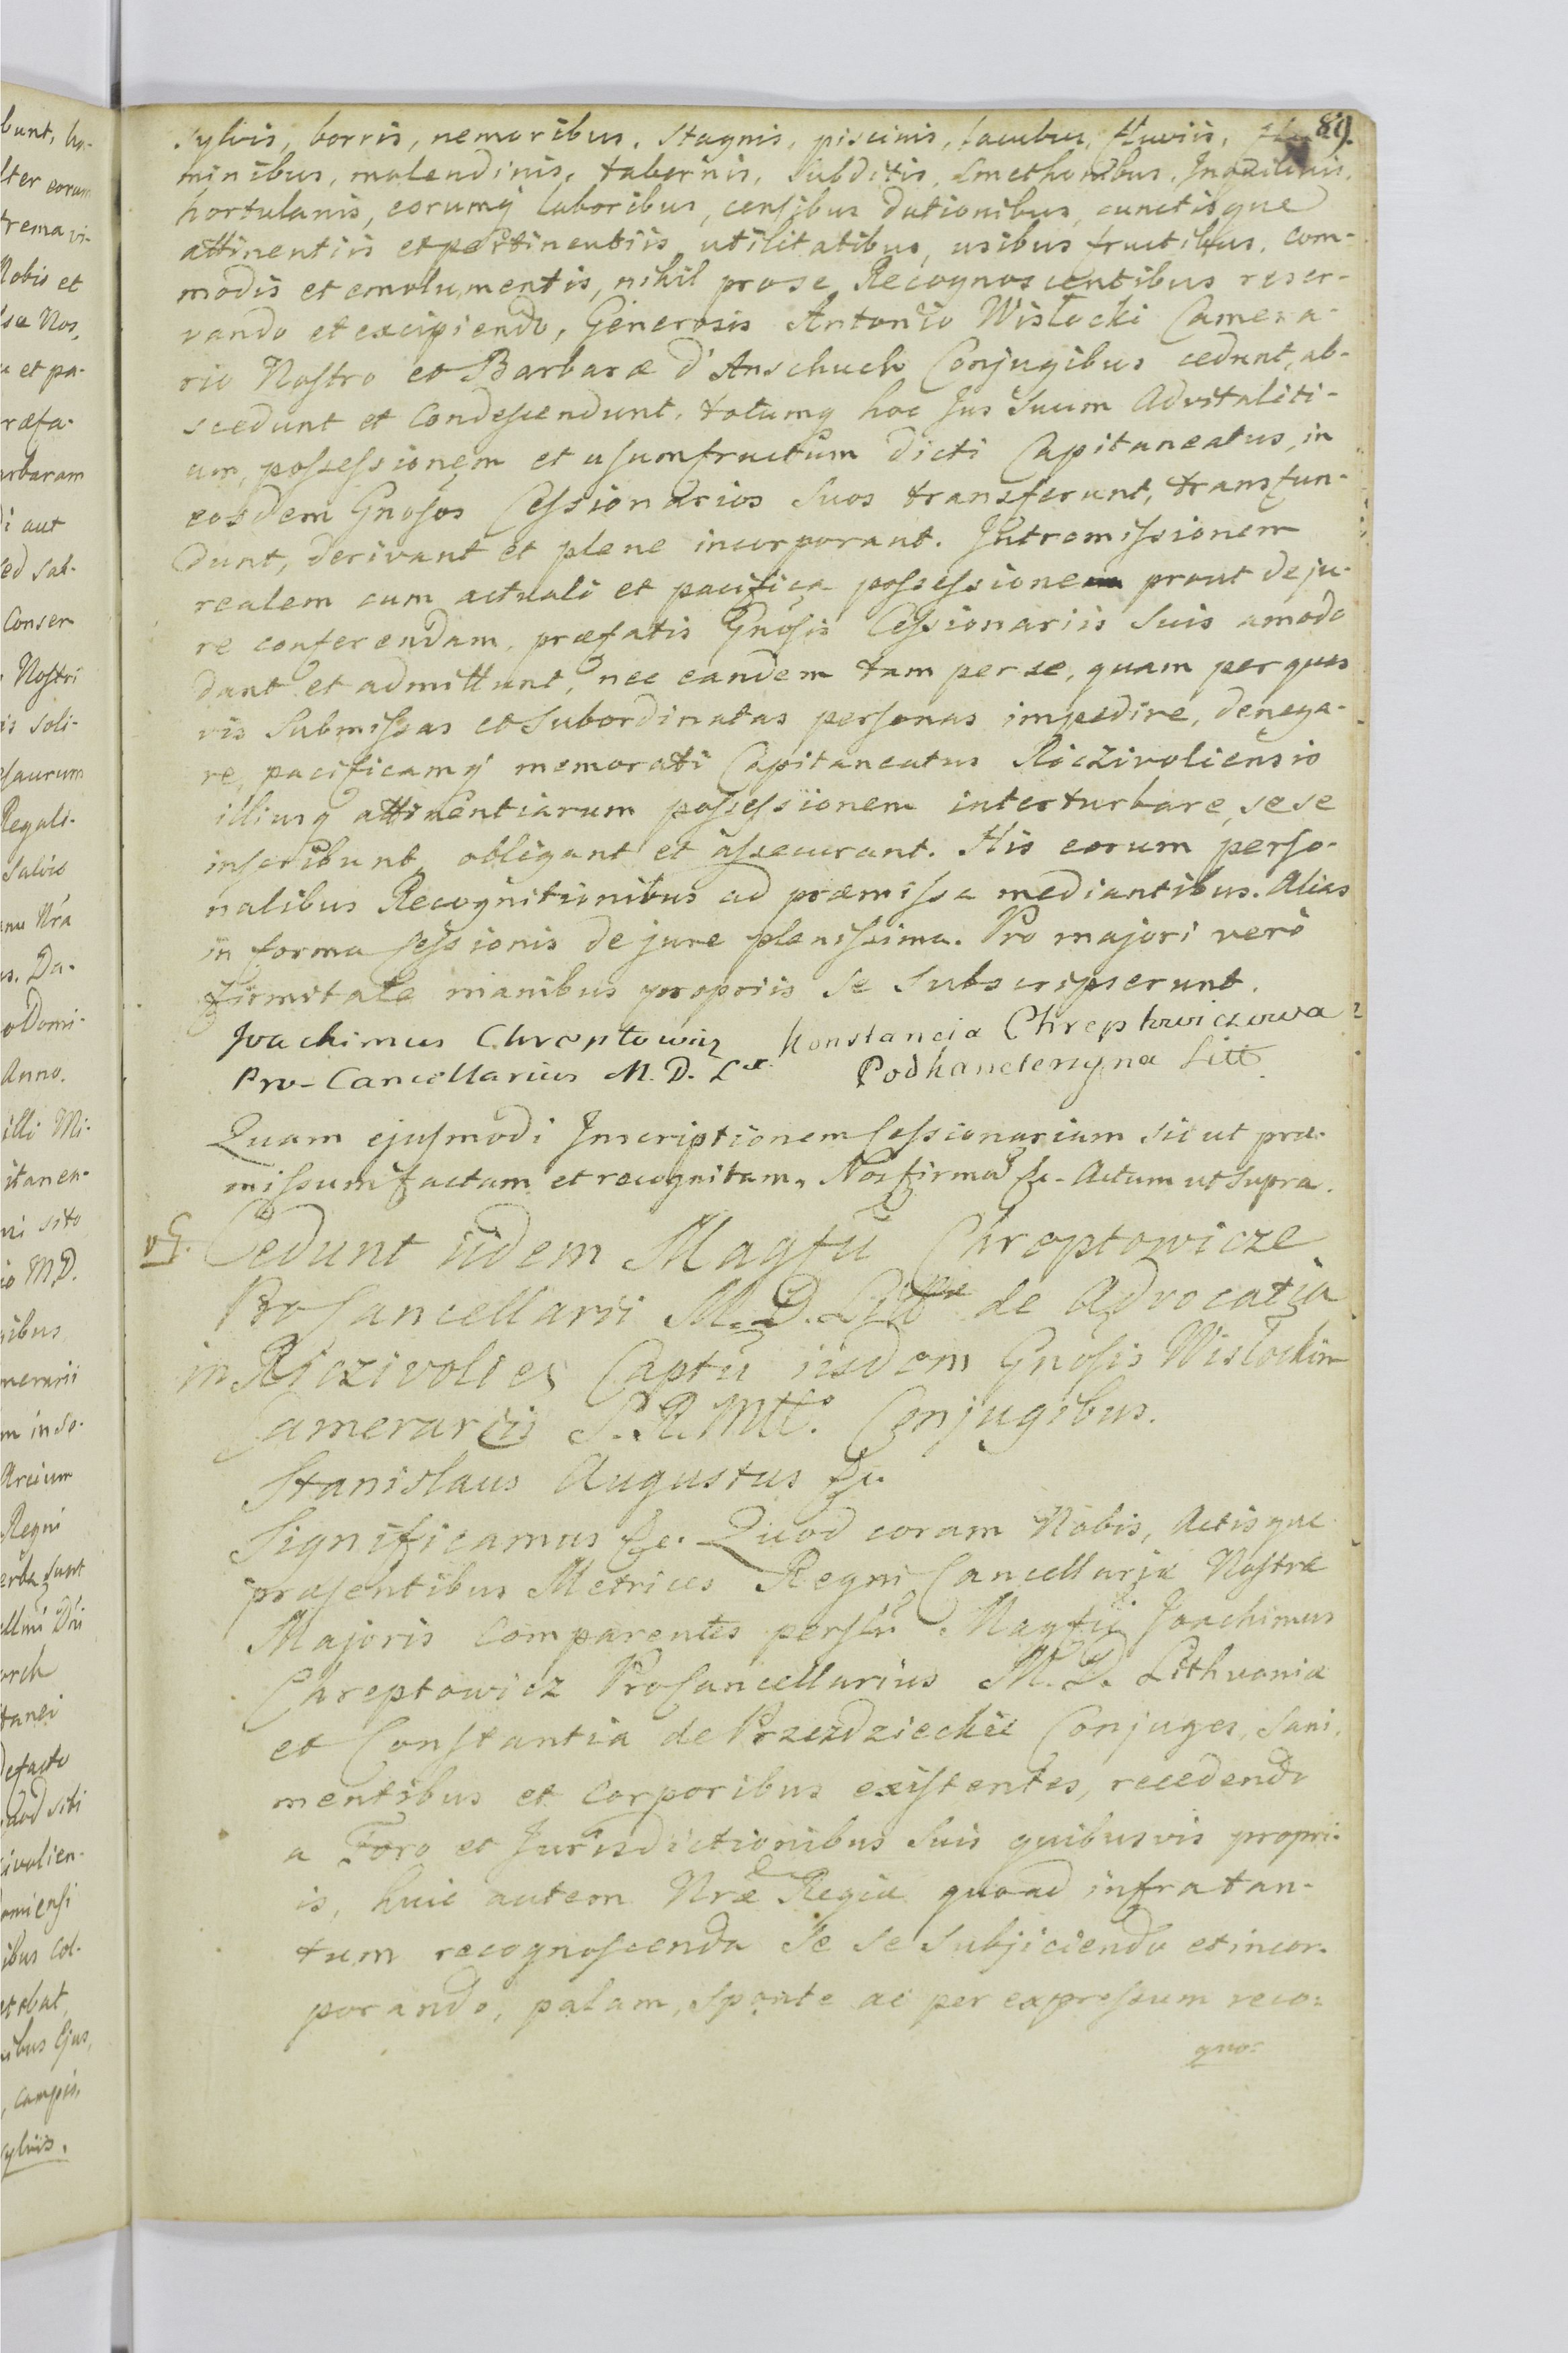 89.
sylvis, borris, nemoribus, stagnis, piscinis, lacubus, fluviis, flu-
minibus, molendinis, tabernis, subditis, Cmethonibus, Inquilinis,
hortulanis, eorumq laboribus, censibus dationibus, cunctisque
attinentiis et pertinentiis utilitatibus, usibus fructibus, com-
modis et emolumentis, nihil pro se Recognoscentibus reser-
vando et excipiendo, Generosis Antonio Wisłocki Camera-
rio Nostro et Barbaræ d'Anschuch Conjugibus cedunt, ab-
scedunt et condescendunt, totumq hoc Jus Suum Advitaliti-
um, possessionem et usumfructum dicti Capitaneatus, in
eosdem Gnosos Cessionarios Suos transferunt, transfun-
dunt, derivant et plene incorporant. Intromissionem
realem cum actuali et pacifica possessione prout de ju-
re conferendam, præfatis Gnosis Cessionariis Suis amodo
dant et admittunt, nec eandem tam per se, quam per quas
vis Submissas et subordinatas personas impedire, denega-
re, pacificamq memorati Capitaneatus Riczivoliensis
illiusq attinentiarum possessionem interturbare, sese
inscribunt, obligant et assecurant. His eorum perso-
nalibus Recognitionibus ad præmissa mediantibus. Alias
in forma Cessionis de jure plenissima. Pro majori verò
firmitate manibus propriis se subscripserunt.
Joachimus Chreptowicz Konstancia Chreptowiczowa
Pro-Cancellarius M. D. L. Podkanclerzyna Litt.
Quam ejusmodi Inscriptionem Cessionariam sicut præ-
missum factam et recognitam, Nos firma &c. Actum ut supra.
Cedunt iidem Magfci Chreptowicze
ProCancellarii M. D. Litt de Advocatia
in Riczivolies Captu iisdem Gnosis Wisłockim
Camerariis S. R. Mtt. Conjugibus.
Stanislaus Augustus &c.
Significamus &c. Quod coram Nobis, Actisque
præsentibus Metrices Regni Cancellariæ Nostræ
Majoris Comparentes perslr Magfci Joachimus
Chreptowicz ProCancellarius M. D. Lithvaniæ
et Constantia de Przezdzieckie Conjuges, Sani
mentibus et Corporibus existentes, recedendo
a Foro et Jurisdictionibus Suis quibusvis propri-
is, huic autem Nræ Regiæ quoad infra tan-
tum recognoscenda se se subjiciendo et incor-
porando, palam, sponte ac per expressum reco-
gno-